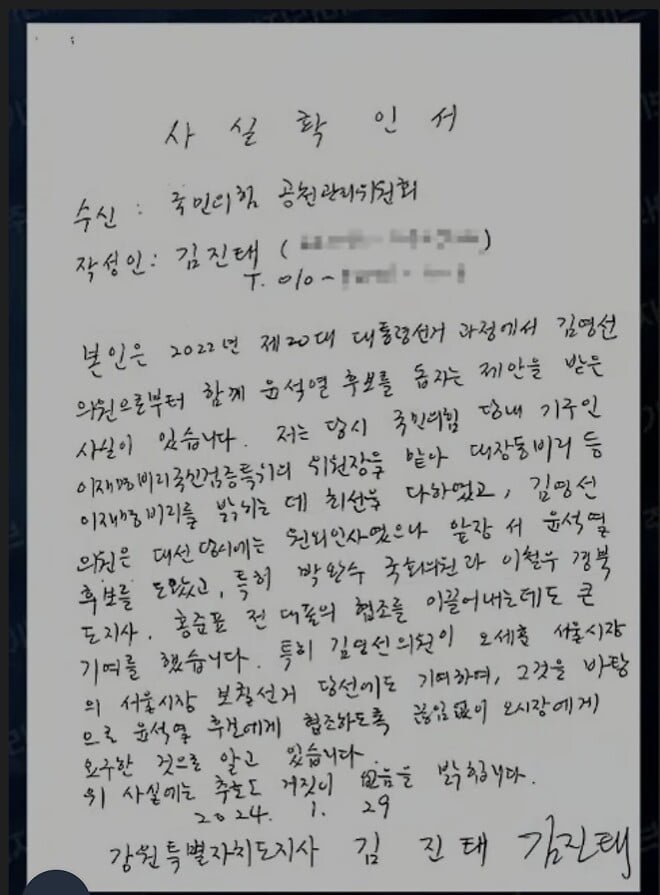 사실확인서
수신 : 국민의힘 공천관리위원회
작성인 : 김진태 (
T. 010-
본인은 2022년 제20대 대통령선거 과정에서 김영선
의원으로부터 함께 윤석열 후보를 돕자는 제안을 받은
사실이 있습니다. 저는 당시 국민의힘 당내 기구인
이재명비리국민검증특위의 위원장을 맡아 대장동비리 등
이재명비리를 밝히는 데 최선을 다하였고, 김영선
의원은 대선 당시에는 원외인사였으나 앞장 서 윤석열
후보를 도왔고, 특히 박완수 국회의원과 이철우 경북
도지사, 홍준표 전 대표의 협조를 이끌어내는데도 큰
기여를 했습니다. 특히 김영선의원이 오세훈 서울시장
의 서울시장 보칠선거 당선에도 기여하여, 그것을 바탕
으로 윤석열 후보에게 협조하도록 끊임없이 오시장에게
요구한 것으로 알고 있습니다.
위 사실에는 추호도 거짓이 없음을 밝힙니다.
2024. 1. 29
강원특별자치도지사 김 진 태 김진태